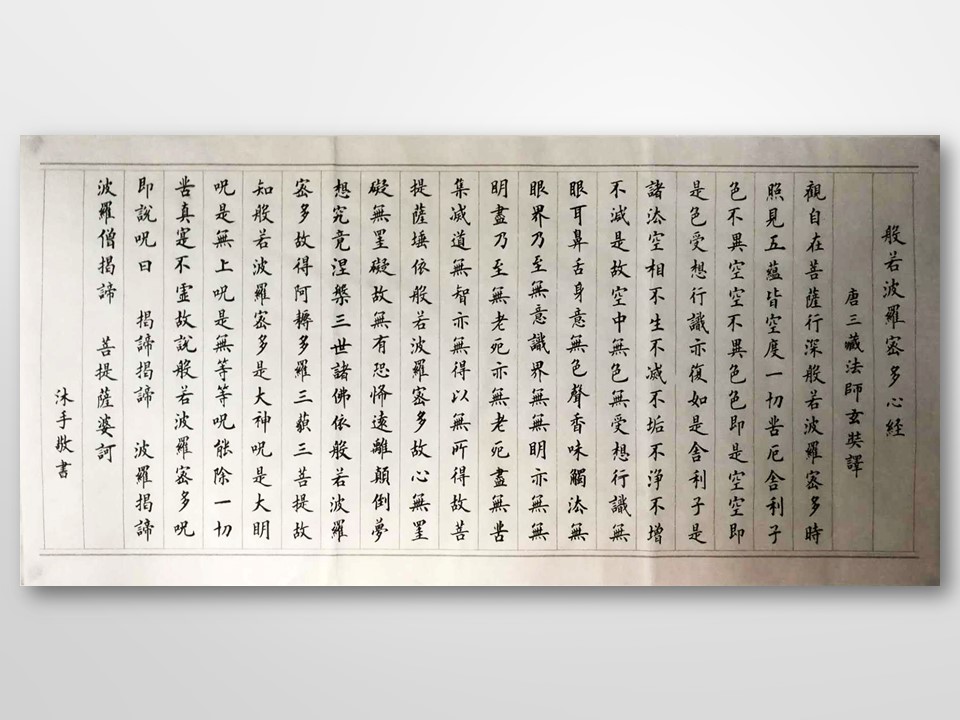 般若波羅蜜多心経
唐三藏法師玄奘譯
觀自在菩薩行深般若波羅蜜多時
照見五蘊皆空度一切苦厄舍利子
色不異空空不異色色即是空空即
是色受想行識亦復如是舍利子是
諸法空相不生不滅不垢不淨不增
不減是故空中無色無受想行識無
眼耳鼻舌身意無色聲香味觸法無
眼界乃至無意識界無無明亦無無
明盡乃至無老死亦無老死盡無苦
集滅道無智亦無得以無所得故菩
提薩埵依般若波羅蜜多故心無罣
礙無罣礙故無有恐怖遠離顛倒夢
想究竟涅槃三世諸佛依般若波羅
蜜多故得阿耨多羅三藐三菩提故
知般若波羅蜜多是大神呪是大明
呪是無上呪是無等等呪能除一切
苦真寔不虛故說般若波羅蜜多呪
即說呪曰 揭諦揭諦 波羅揭諦
波羅僧揭諦 菩提薩婆訶
沐手敬書